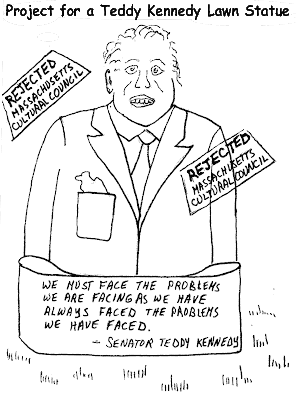 Project for a Teddy Kennedy Lawn Statue
REJECTED
MASSACHUSETTS
CULTURAL COUNCIL
REJECTED
MASSACHUSETTS
CULTURAL COUNCIL
WE MUST FACE THE PROBLEMS
WE ARE FACING AS WE HAVE
ALWAYS FACED THE PROBLEMS
WE HAVE FACED.
- SENATOR TEDDY KENNEDY